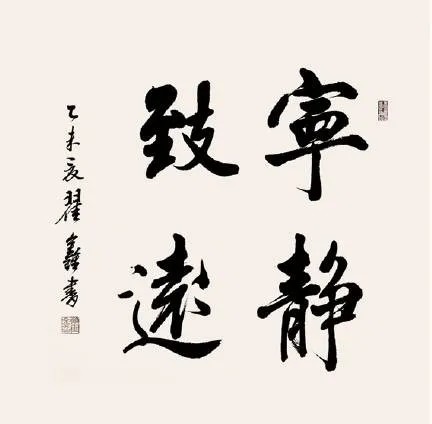 寧静
致遠
乙未夏翟鑫書